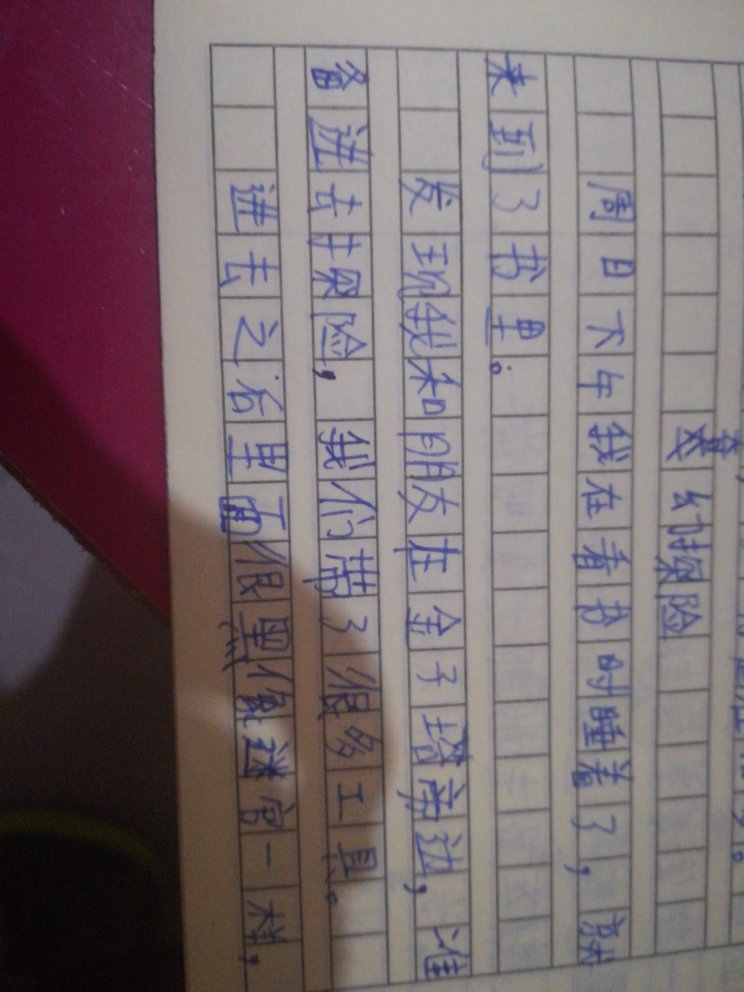 奇
幻探险
周日下午我在看书时睡着了，就
来到了书里。
发现我和朋友在金子塔旁边，准
备进去探险，我们带了很多工具。
进去之后里面很黑像迷宫一样，